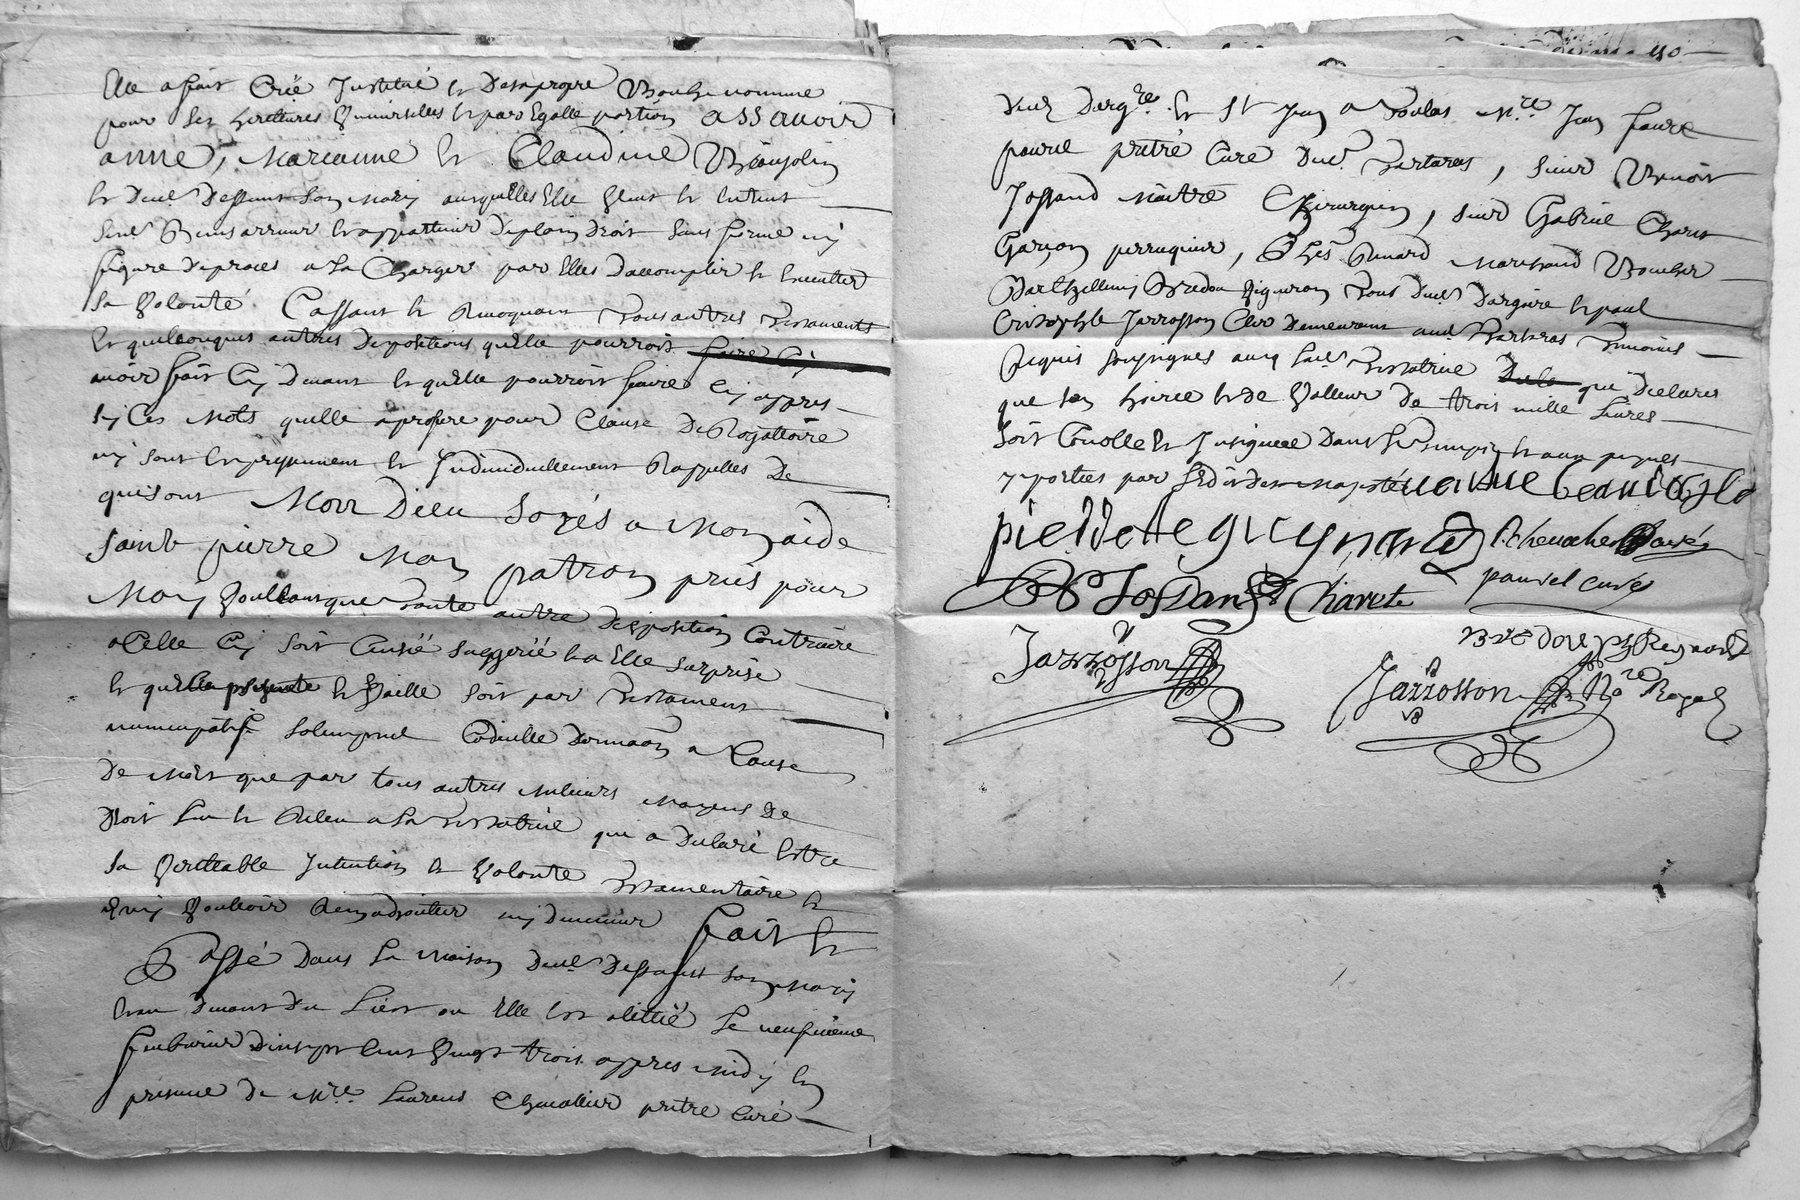 Elle a fait Créé Institué et de sa propre Bouche nommé
pour ses heritieres Universelles et par Egalle portion assavoir
anne, Marianne et Claudine Beaujolin
et dud. deffunt son mary ausquelles Elle Veut et Entent
sesd. Biens arriver et appartenir de plain droit sans forme ny
figure de proces a la Charger par Elles daccomplir et Executter
sa Volonté. Cassant et Revoquant tous autres testaments
et quelconques autres dispositions quelle pourroit faire Cy
avoir fait Cy devant et quelle pourroit faire Cy appres
sy Ces mots quelle a profere pour Clause derogattoire
ny sont Expressement et Individuellement Rappelles
qui sont Mon Dieu soyés a Mon aide
saint pierre Mon patron priés pour
Moy Voullant que toutte autre disposition Contraire
a Celle Cy soit Censéé suggeréé et a Elle surprise
et quelle et Vaille soit par testament
nuncupatif sollempnel Codicille donnaon a Cause
de mort que par tous autres milieurs moyens de
droit Lu et Releu a la testatrice qui a declaré Estre
sa Veritable Intention et Volonté testamentaire et
ny Voulloir Rien adjoutter ny diminuer fait et
Passé dans la maison dud. deffunt son mary
au devant du Liect ou Elle Est alittéé le neufvieme
febvrier dix sept Cent Vingt trois appres midy En
presence de Mre Laurens Chevallier pretre Curé
dud. Darg.re et St Jean a Mre Jean faure
pretre Curé dud. tartaras, sieur Benoit
Jossand Maître Chirurgien, sieur Gabriel Charet
Garçon perruquier, Renard Marchand Boucher
Barthellemy Bredou Vigneron tous dud. Dargoire et paul
Cristophle Jarrosson Clerc demeurant aud. tartaras temoins
Requis soussignes avec lad. testatrice qui declare
que son hoirie Est de Valleur de trois mille Livres
soit Controllé et Insigneee dans le temps et aux peynes
portées par Ledit de sa Majesté
pierrette gueynard Chevallier Curé
Jossand Charet Curé
Jarrosson
Jarrosson No.re Royal